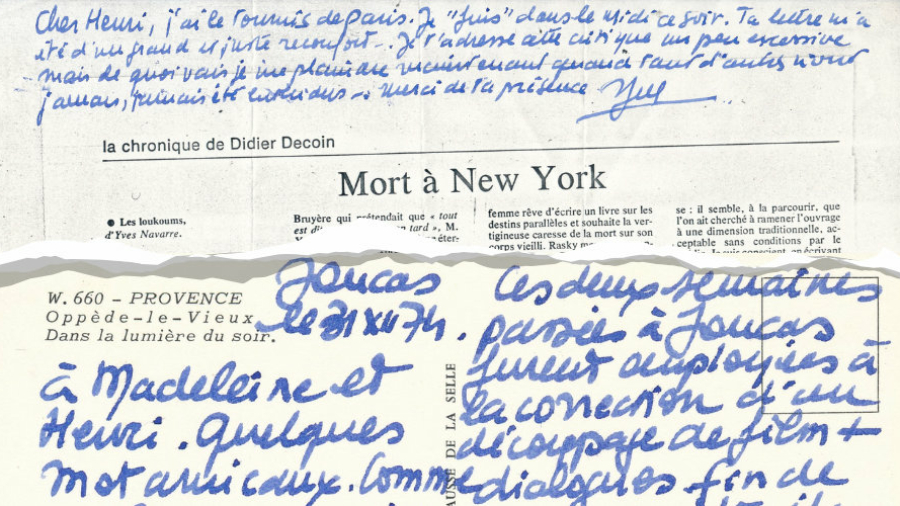 Cher Henri, j'ai le tournis de Paris. Je "fuis" dans le midi ce soir. Ta lettre m'a
été d'un grand et juste réconfort. Je t'adresse cette critique un peu excessive
mais de quoi vais je me plaindre maintenant quand tant d'autres n'ont
jamais, jamais été entendus. merci de ta présence
la chronique de Didier Decoin
Mort à New York
● Les loukoums,
d'Yves Navarre.
Bruyère qui prétendait que « tout
est tard », M.
femme rêve d'écrire un livre sur les
destins parallèles et souhaite la ver-
tigineuse caresse de la mort sur son
corps vieilli. Rasky
se : il semble, à la parcourir, que
l'on ait cherché à ramener l'ouvrage
à une dimension traditionnelle, ac-
ceptable sans conditions par le
W. 660 – PROVENCE
Oppède-le-Vieux
Dans la lumière du soir.
Joucas
le 31 XII 74.
à Madeleine et
Henri. Quelques
mot amicaux. Comme
AUSSE DE LA SELLE
Ces deux semaines
passées à Joucas
furent employées à
la correction d'un
découpage de film +
dialogues fin de